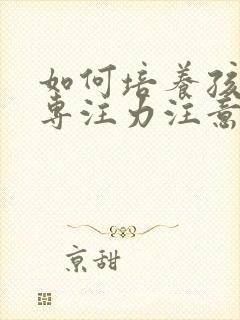 如何培养孩
专注力注意
京甜